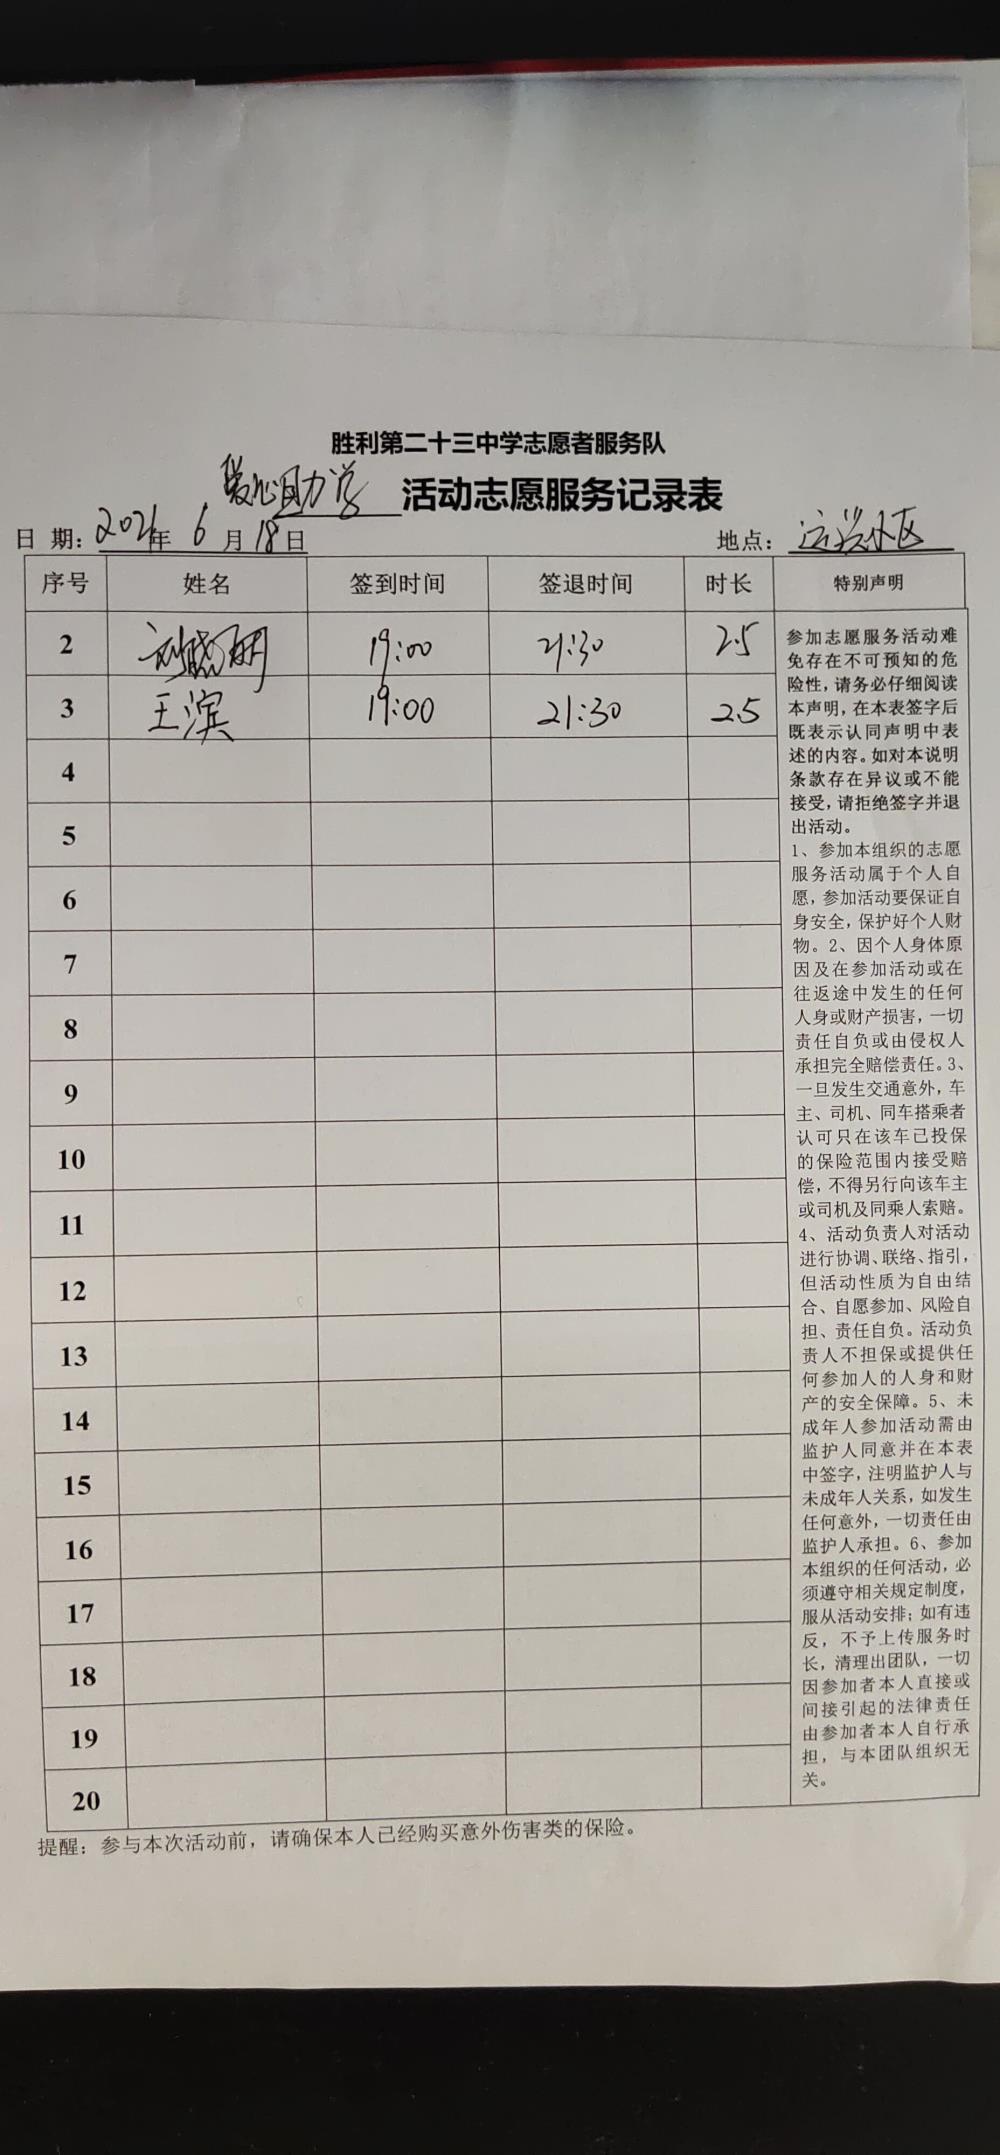 胜利第二十三中学志愿者服务队
爱心助学 活动志愿服务记录表
日 期: 2021年 6 月 18 日 地点: 运兴小区
序号 姓名 签到时间 签退时间 时长 特别声明
2 刘晓明 19:00 21:30 2.5
3 王滨 19:00 21:30 2.5
4
5
6
7
8
9
10
11
12
13
14
15
16
17
18
19
20
参加志愿服务活动难
免存在不可预知的危
险性,请务必仔细阅读
本声明,在本表签字后
既表示认同声明中表
述的内容。如对本说明
条款存在异议或不能
接受,请拒绝签字并退
出活动。
1、参加本组织的志愿
服务活动属于个人自
愿,参加活动要保证自
身安全,保护好个人财
物。2、因个人身体原
因及在参加活动或在
往返途中发生的任何
人身或财产损害,一切
责任自负或由侵权人
承担完全赔偿责任。3、
一旦发生交通意外,车
主、司机、同车搭乘者
认可只在该车已投保
的保险范围内接受赔
偿,不得另行向该车主
或司机及同乘人索赔。
4、活动负责人对活动
进行协调、联络、指引,
但活动性质为自由结
合、自愿参加、风险自
担、责任自负。活动负
责人不担保或提供任
何参加人的人身和财
产的安全保障。5、未
成年人参加活动需由
监护人同意并在本表
中签字,注明监护人与
未成年人关系,如发生
任何意外,一切责任由
监护人承担。6、参加
本组织的任何活动,必
须遵守相关规定制度,
服从活动安排;如有违
反,不予上传服务时
长,清理出团队,一切
因参加者本人直接或
间接引起的法律责任
由参加者本人自行承
担,与本团队组织无
关。
提醒:参与本次活动前,请确保本人已经购买意外伤害类的保险。